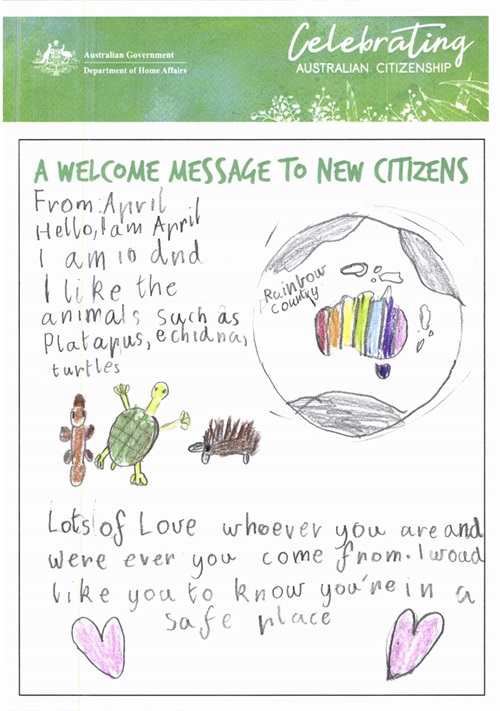 Australian Government
Department of Home Affairs
Celebrating
AUSTRALIAN CITIZENSHIP
A WELCOME MESSAGE TO NEW CITIZENS
From: April
Hello, I am April
I am 10 and
I like the
animals such as
Platapus, echidna,
turtles
Rainbow
country
Lots of Love whoever you are and
were ever you come from. I woud
like you to know you're in a
safe place